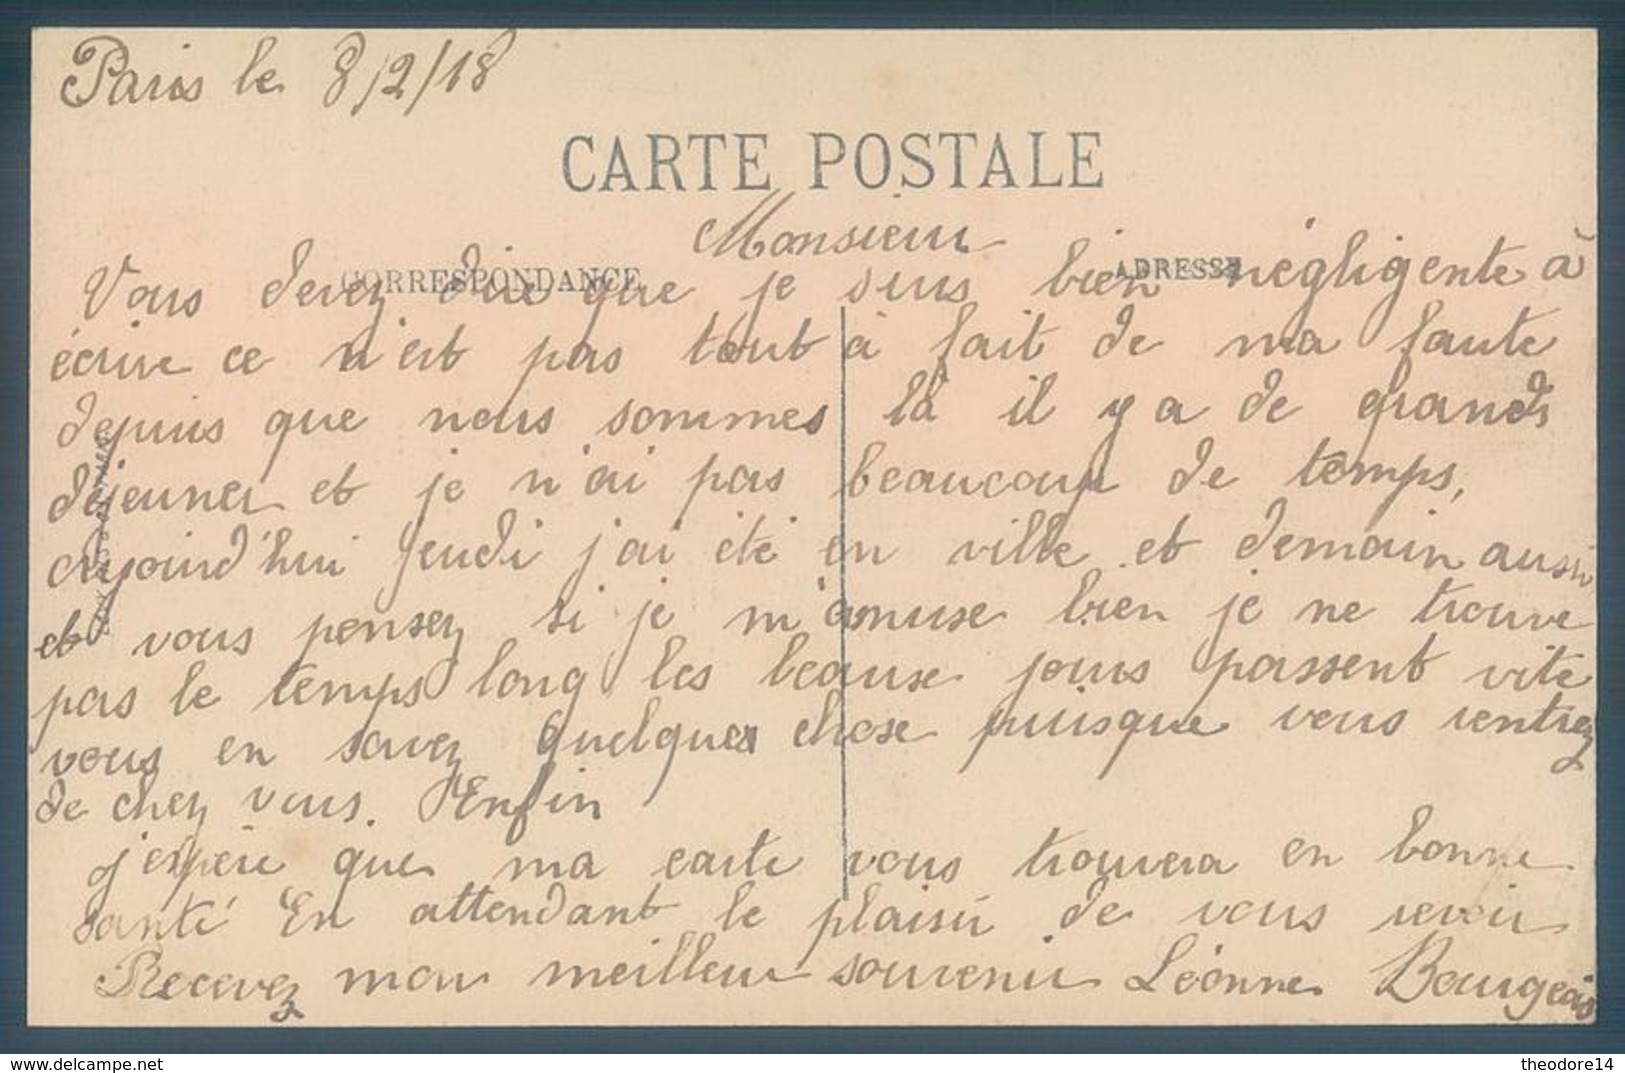 Paris le 8/2/18
CARTE POSTALE
Monsieur
CORRESPONDANCE
ADRESSE
Vous devez dire que je suis bien négligente à
écrire ce n'est pas tout à fait de ma faute
depuis que nous sommes là il y a de grands
déjeuner et je n'ai pas beaucoup de temps,
aujourd'hui jeudi j'ai été en ville et demain aussi
et vous pensez si je m'amuse bien je ne trouve
pas le temps long les beaux jours passent vite
vous en savez quelques chose puisque vous rentrez
de chez vous. Enfin
j'espère que ma carte vous trouvera en bonne
santé En attendant le plaisir de vous revoir
Recevez mon meilleur souvenir Léonne Bourgeois
www.delcampe.net
theodore14